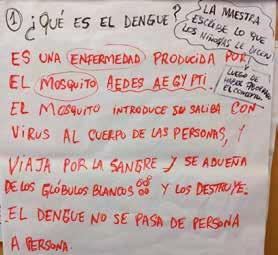 1 ¿QUÉ ES EL DENGUE?
LA MAESTRA
ESCRIBE LO QUE
LES NIÑOS/AS LE DICEN
ES UNA ENFERMEDAD PRODUCIDA POR
EL MOSQUITO AEDES AEGYPTI.
LUEGO DE
HABER
EL
EL MOSQUITO INTRODUCE SU SALIBA CON
VIRUS AL CUERPO DE LAS PERSONAS, Y
VIAJA POR LA SANGRE Y SE ADUEÑA
DE LOS GLÓBULOS BLANCOS Y LOS DESTRUYE.
EL DENGUE NO SE PASA DE PERSONA
A PERSONA.